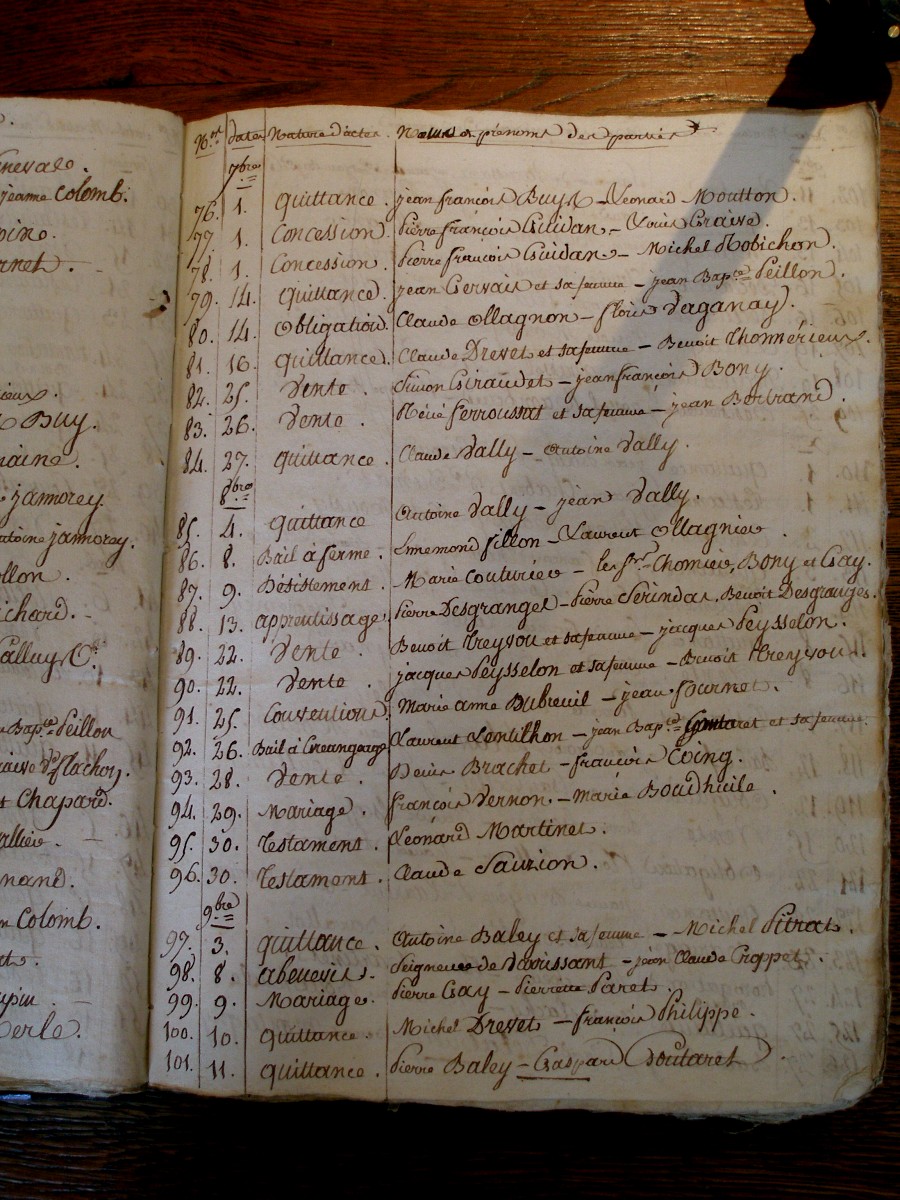 nevale.
jeanne Colomb.
oine.
rnet.
ieux.
Buy.
naine.
jamorey.
antoine jamorey.
llon.
ichard.
n Bap.te Peillon
t Chapard.
allier.
nand.
n Colomb.
upin.
erle.
N.os dates Nature d'actes. Noms et prénoms des parties
7bre
76. 1. quittance. jean françois Buys - Léonard Moutton.
77. 1. Concession. Pierre françois Guidan - Louis Graive.
78. 1. Concession. Pierre françois Guidan - Michel Robichon.
79. 14. quittance. jean Gervais et sa femme - jean Bap.te Peillon.
80. 14. obligation. Claude Ollagnon - floris Daganay.
81. 16. quittance. Claude Drevet et sa femme - Benoit Thomérieux.
82. 25. Vente. Simon Giraudet - jean françois Bony.
83. 26. Vente. Réné ferroussat et sa femme - jean Bertrand.
84. 27. quittance. Claude Vally - Antoine Vally.
8bre
85. 4. quittance Antoine Vally - jean Vally.
86. 8. Bail à ferme. Ennemond fillon - Laurent Ollagnier.
87. 9. Désistement. Marie Couturier - les Srs Chomier, Bony et Gay.
88. 13. apprentissage. Pierre Desgranges - Pierre Serindas, Benoit Desgranges.
89. 22. Vente. Benoit Treyvou et sa femme - jacques Peysselon.
90. 22. Vente. jacques Peysselon et sa femme - Benoit Treyvou.
91. 25. Conventions. Marie anne Dubreuil - jean fournet.
92. 26. Bail à Grangeage Laurent Lentilhon - jean Bap.te et sa femme.
93. 28. Vente. Denis Brachet - françois Coing.
94. 29. Mariage. françois Vernon. - Marie Boudhuile.
95. 30. Testament. Léonard Martinet.
96. 30. Testament. Claude Sauzion.
9bre
97. 3. quittance. Antoine Baley et sa femme - Michel Pitrat.
98. 8. abenevis. Seigneur de - jean Claude Croppet.
99. 9. Mariage. Pierre Gay - Pierrette Paret.
100. 10. quittance. Michel Drevet - françois Philippe.
101. 11. quittance. Pierre Baley - Gaspard Soutaret